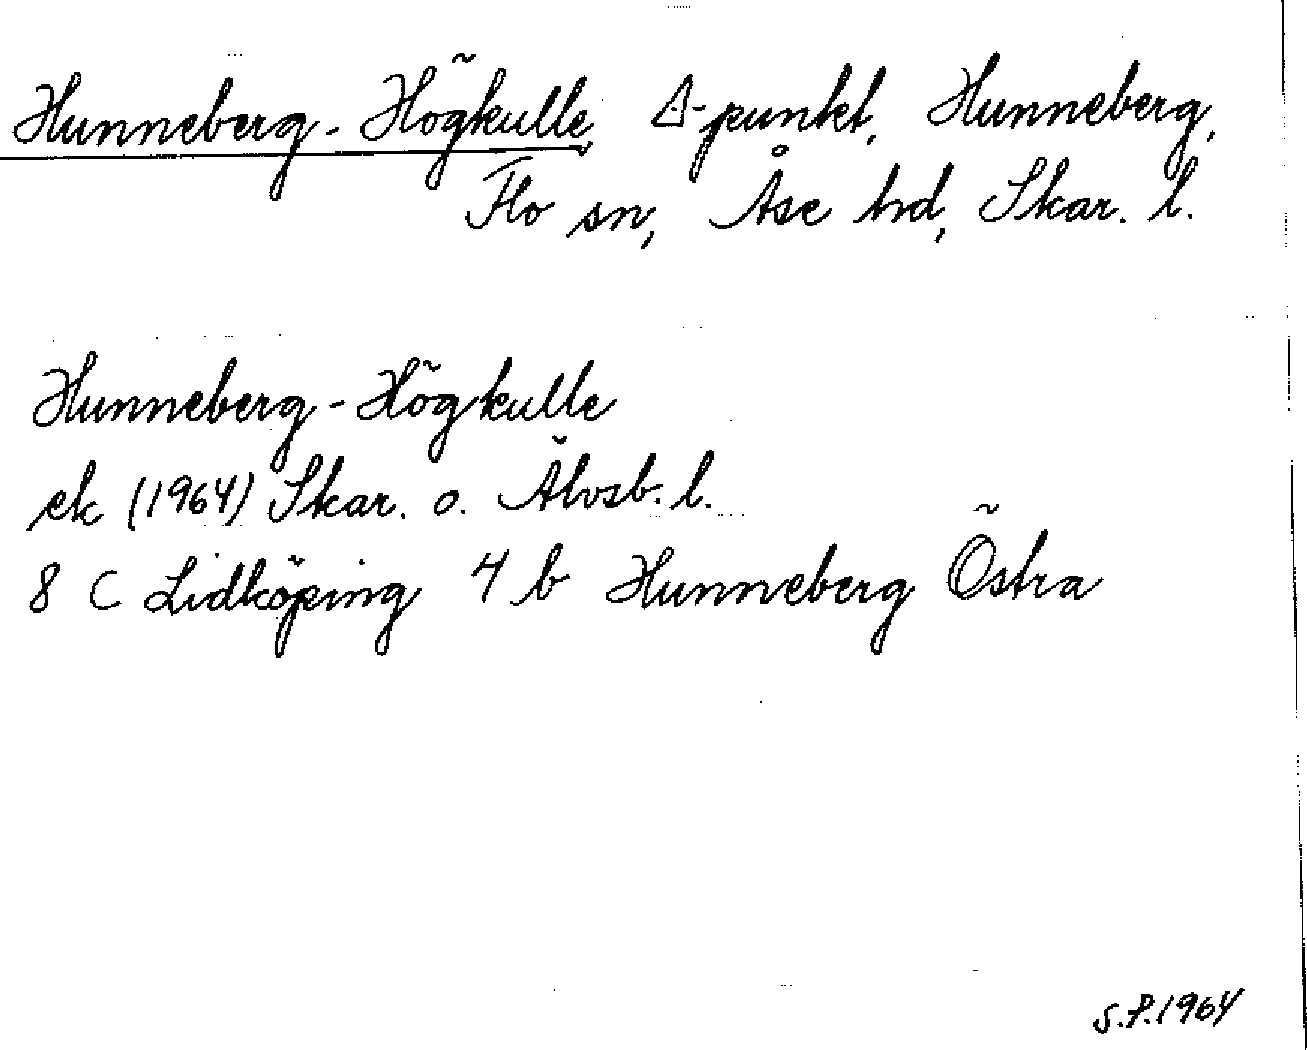 Hunneberg-Högkulle, Δ-punkt, Hunneberg,
Flo sn, Åse hd, Skar. l.
Hunneberg-Högkulle
ek (1964) Skar. o. Älvsb. l.
8 C Lidköping 4 b Hunneberg Östra
S.P.1964